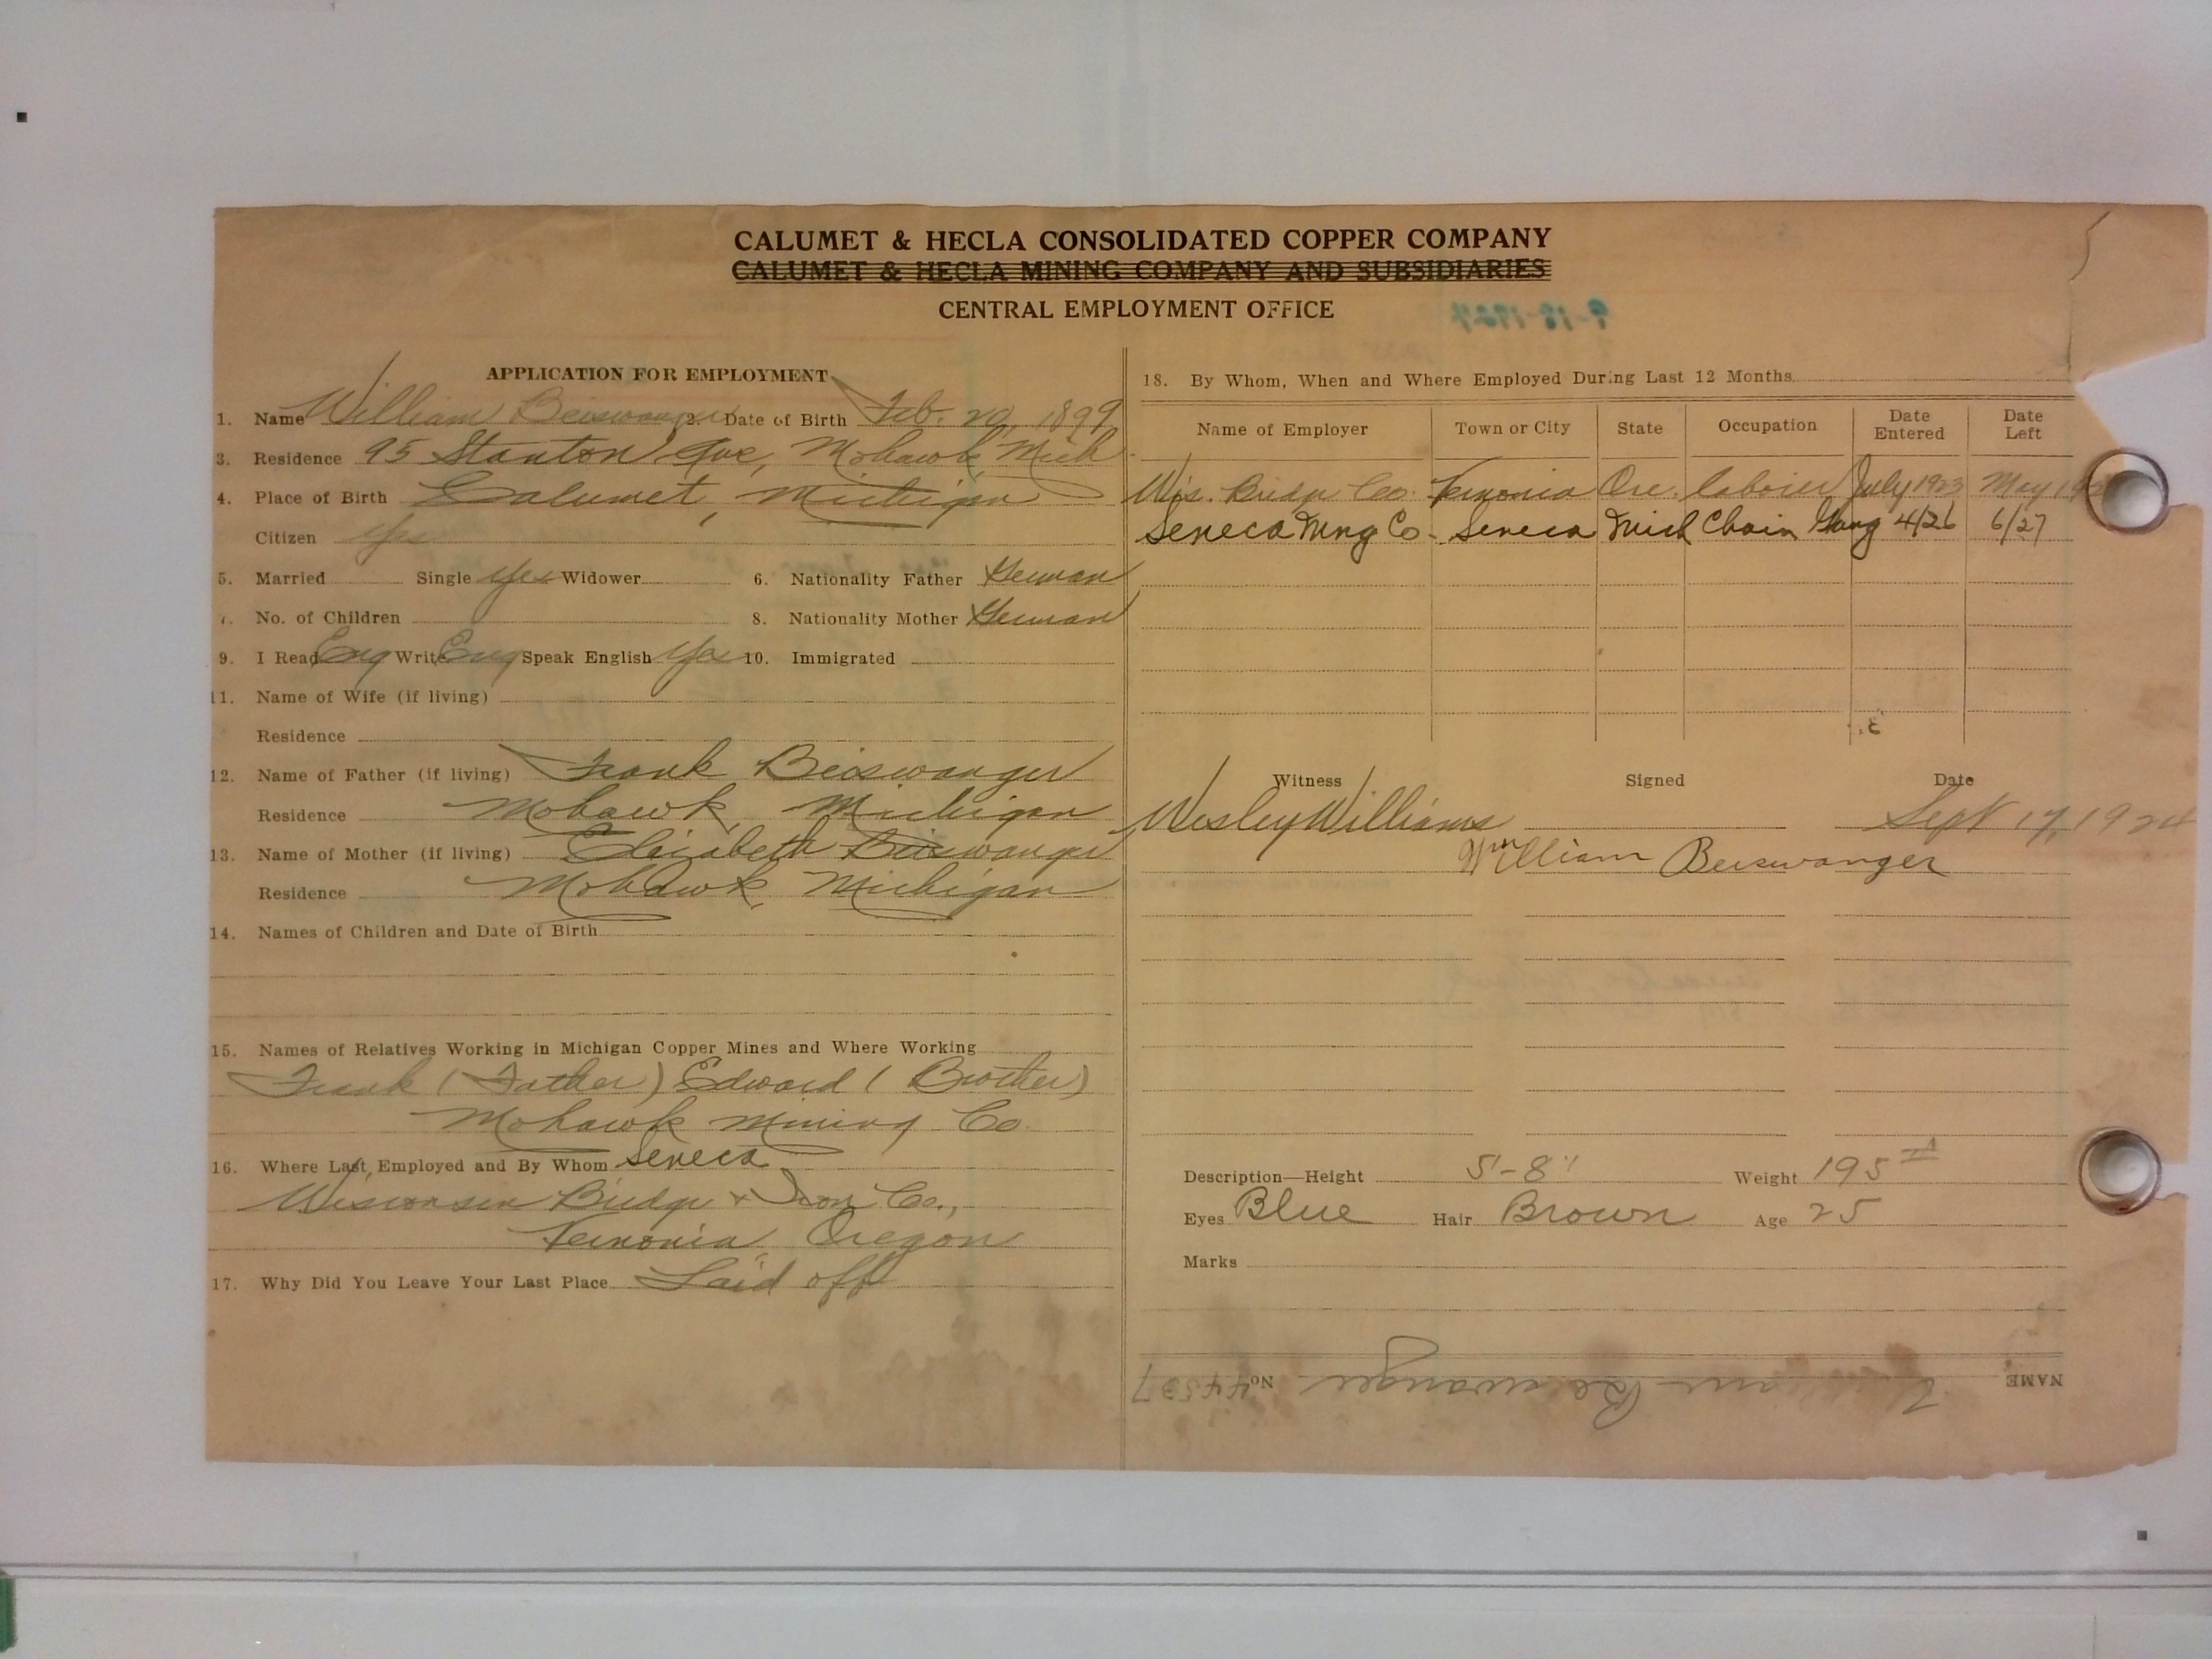 CALUMET & HECLA CONSOLIDATED COPPER COMPANY
CALUMET & HECLA MINING COMPANY AND SUBSIDIARIES
CENTRAL EMPLOYMENT OFFICE
9-18-1924
APPLICATION FOR EMPLOYMENT
1. Name William Beiswanger 2. Date of Birth Feb. 20, 1899
3. Residence 95 Stanton Ave, Mohawk, Mich
4. Place of Birth Calumet, Michigan
Citizen Yes
5. Married Single Yes Widower 6. Nationality Father German
7. No. of Children 8. Nationality Mother German
9. I Read Eng Write Eng Speak English Yes 10. Immigrated
11. Name of Wife (if living)
Residence
12. Name of Father (if living) Frank Beiswanger
Residence Mohawk, Michigan
13. Name of Mother (if living) Elizabeth Beiswanger
Residence Mohawk, Michigan
14. Names of Children and Date of Birth
15. Names of Relatives Working in Michigan Copper Mines and Where Working
Frank (Father) Edward (Brother)
Mohawk Mining Co.
16. Where Last Employed and By Whom Seneca
Wisconsin Bridge & Iron Co.,
Vernonia, Oregon
17. Why Did You Leave Your Last Place Laid off
18. By Whom, When and Where Employed During Last 12 Months
Name of Employer Town or City State Occupation Date Entered Date Left
Wis. Bridge Co. Vernonia Ore. laborer July 1923 May
Seneca Mng Co. Seneca Mich Chain Gang 4/26 6/27
Witness Signed Date
Wesley Williams Sept 17, 1924
William Beiswanger
Description—Height 5'-8" Weight 195
Eyes Blue Hair Brown Age 25
Marks
NAME William Beiswanger No.